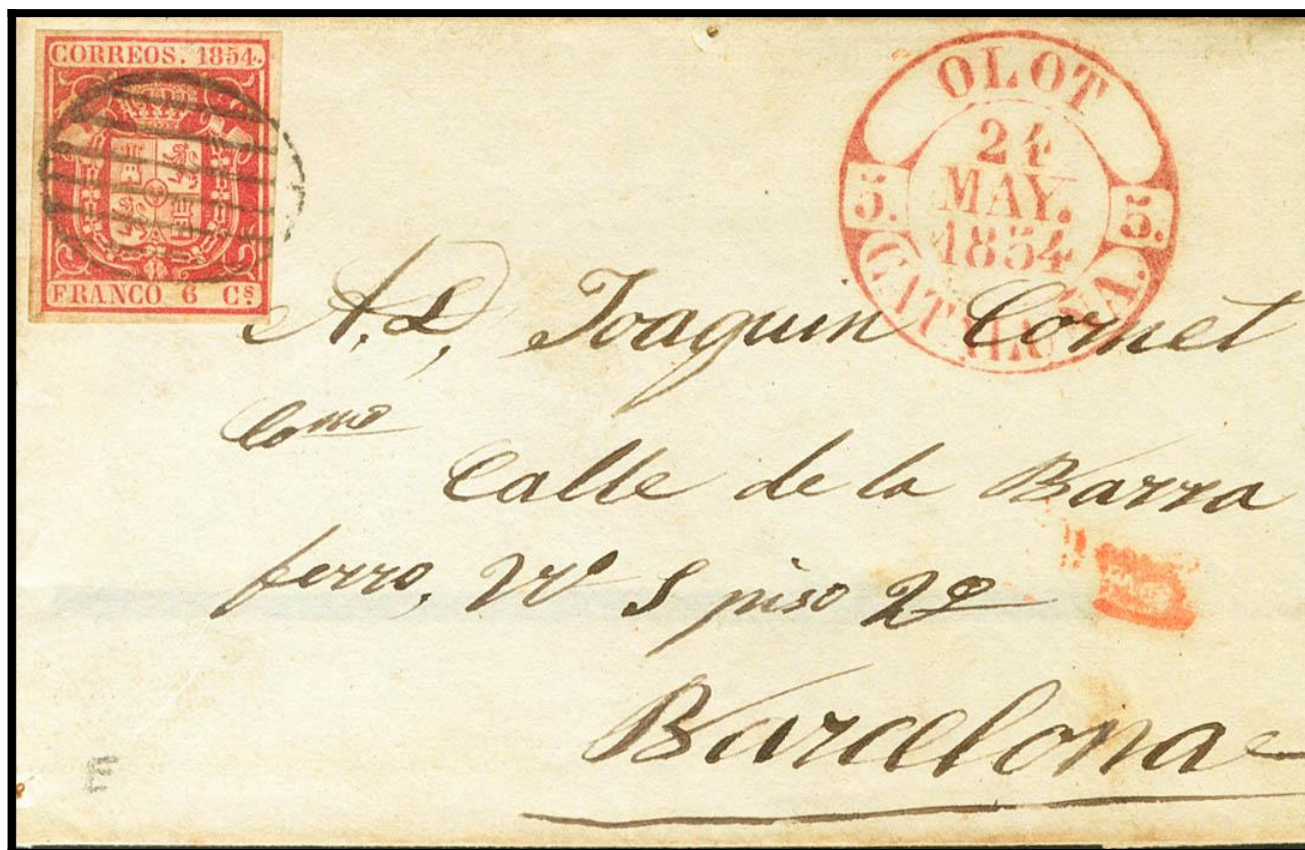 CORREOS. 1854.
FRANCO 6 Cs
OLOT
24
MAY.
1854
5. 5.
CATALUÑA.
A.D. Joaquin Comet
Como
Calle de la Barra
ferro, Nº 5 piso 2º
Barcelona
E